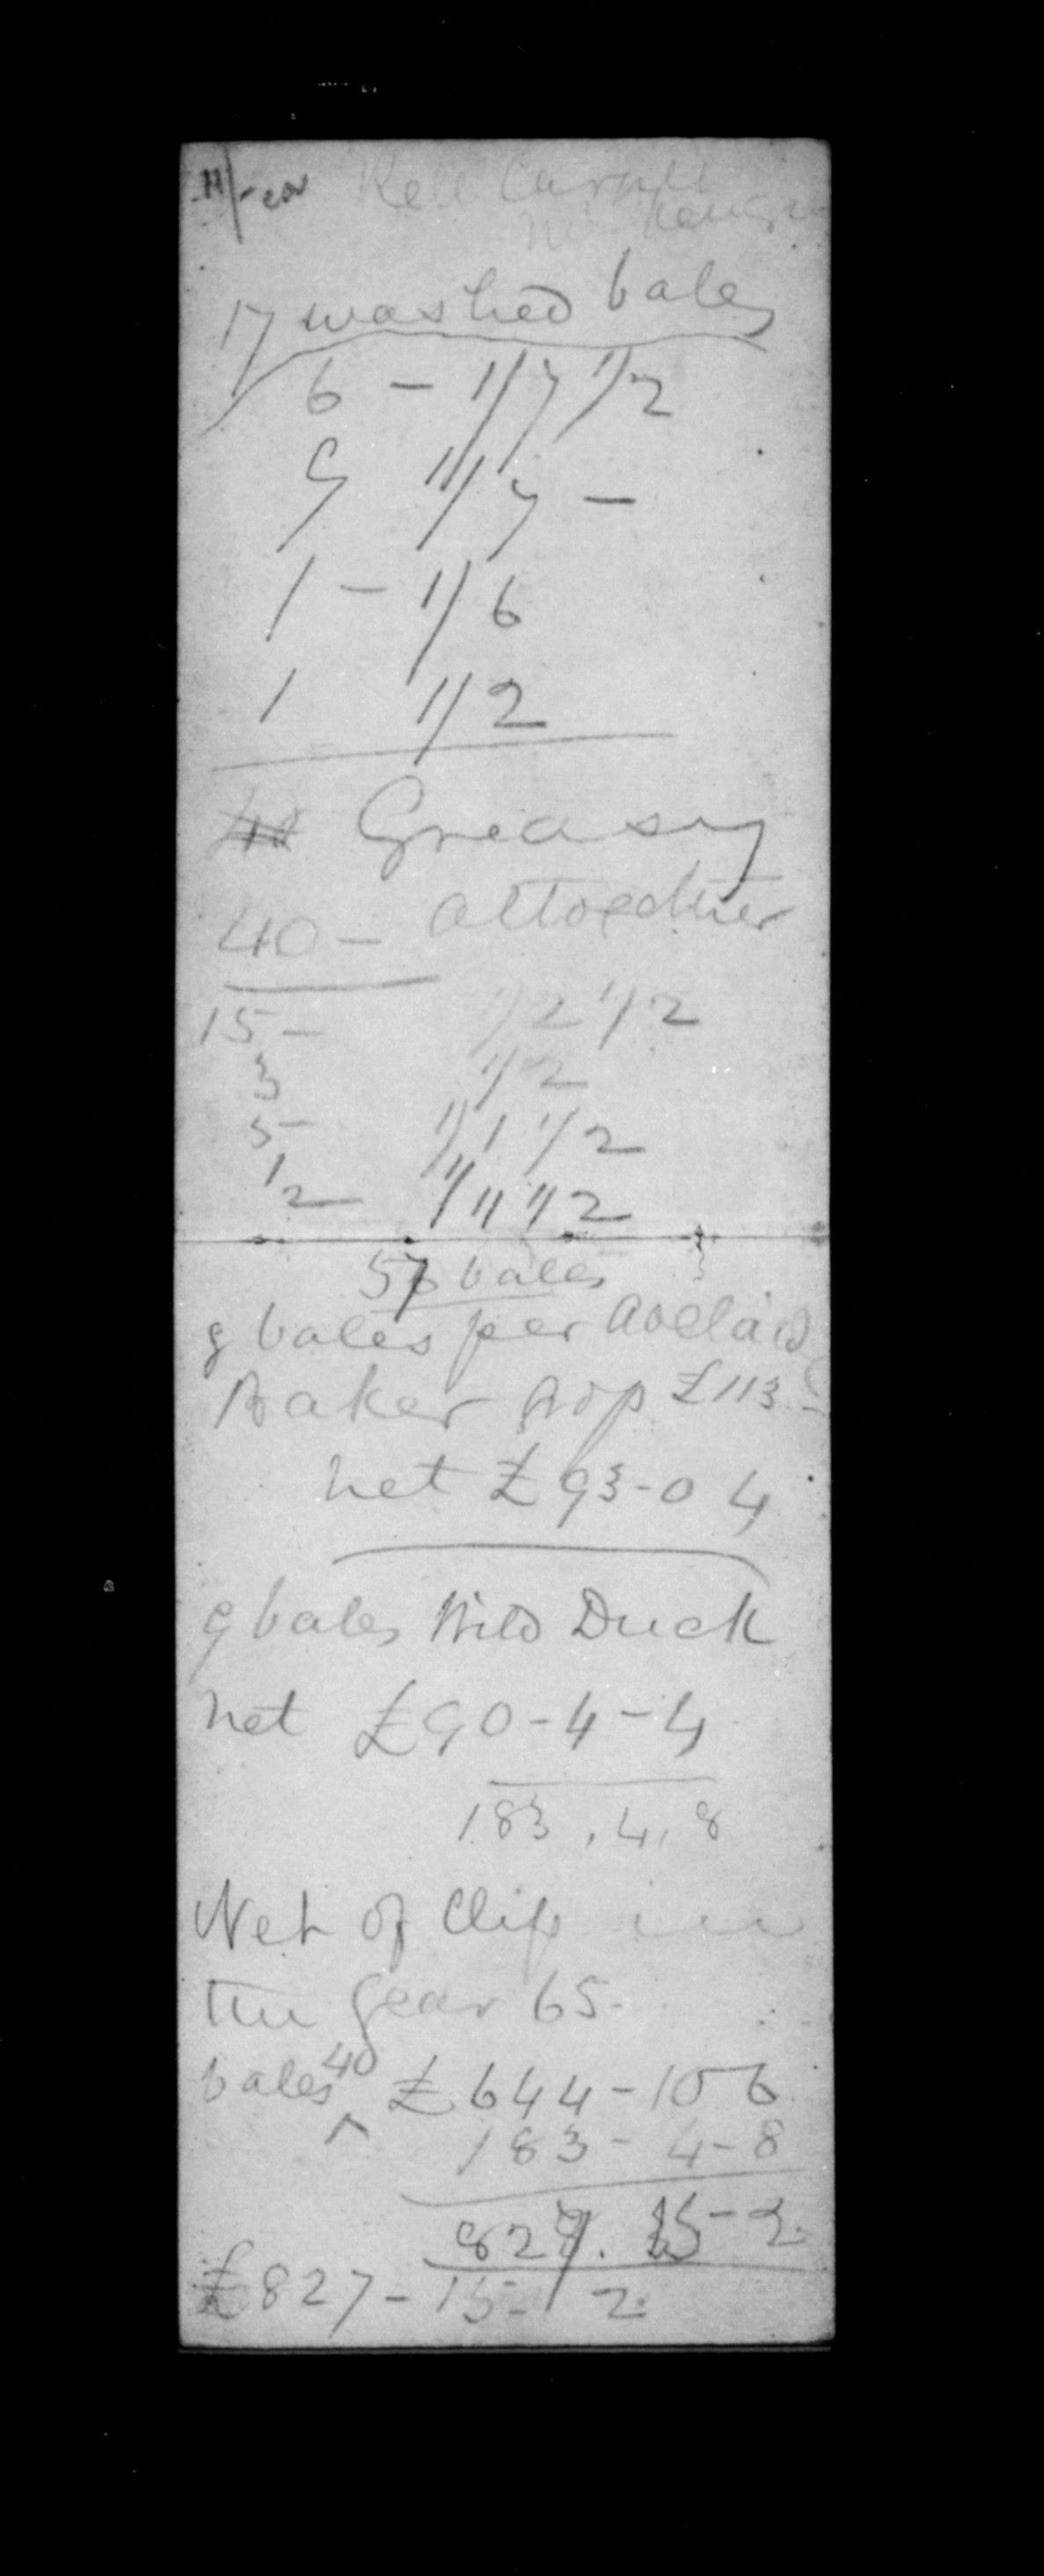 17 washed bales
6 - 1/7 1/2
9 1/7 -
1 - 1/6
1 1/2
Greasy
40 - altogether
15 - 1/2 1/2
3 1/2
5 1/1 1/2
1/2 1/11 1/2
57 bales
9 bales per Adelaide
Baker £113 -
net £93-0 4
9 bales Wild Duck
net £90-4-4
183, 4, 8
Net of Clip
the year 65.
bales 40 £644-10 6
183 - 4-8
827. 15-2
£827-15-2